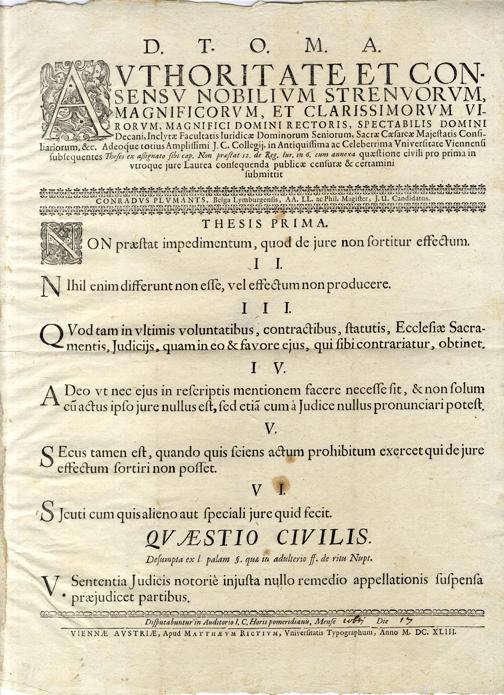 D. T. O. M. A.
AVTHORITATE ET CON-
SENSV NOBILIVM STRENVORVM,
MAGNIFICORVM, ET CLARISSIMORVM VI-
RORVM, MAGNIFICI DOMINI RECTORIS, SPECTABILIS DOMINI
Decani, Inclytæ Facultatis Iuridicæ Dominorum Seniorum, Sacræ Cæsareæ Majestatis Consi-
liariorum, &c. Adeoque totius Amplissimi J. C. Collegij, in Antiquissima ac Celeberrima Vniversitate Viennensi
subsequentes Theses ex assignato sibi cap. Non præstat 52. de Reg. Iur. in 6. cum annexa quæstione civili pro prima in
vtroque jure Laurea consequenda publicæ censuræ & certamini
submittit
CONRADVS PLVMANTS, Belga Lymburgensis, AA. LL. ac Phil. Magister, J. U. Candidatus.
THESIS PRIMA.
NON præstat impedimentum, quod de jure non sortitur effectum.
II.
NIhil enim differunt non esse, vel effectum non producere.
III.
QVod tam in vltimis voluntatibus, contractibus, statutis, Ecclesiæ Sacra-
mentis, Judicijs, quam in eo & favore ejus, qui sibi contrariatur, obtinet.
IV.
ADeo vt nec ejus in rescriptis mentionem facere necesse sit, & non solum
cū actus ipso jure nullus est, sed etiā cum à Judice nullus pronunciari potest.
V.
SEcus tamen est, quando quis sciens actum prohibitum exercet qui de jure
effectum sortiri non posset.
VI.
SIcuti cum quis alieno aut speciali jure quid fecit.
QVÆSTIO CIVILIS.
Desumpta ex l palam §. quæ in adulterio ff. de ritu Nupt.
V. Sententia Judicis notoriè injusta nullo remedio appellationis suspensa
præjudicet partibus.
Disputabuntur in Auditorio I. C. Horis pomeridianis, Mense Die 17
VIENNÆ AVSTRIÆ, Apud MATTHÆVM RICTIVM, Vniversitatis Typographum, Anno M. DC. XLIII.